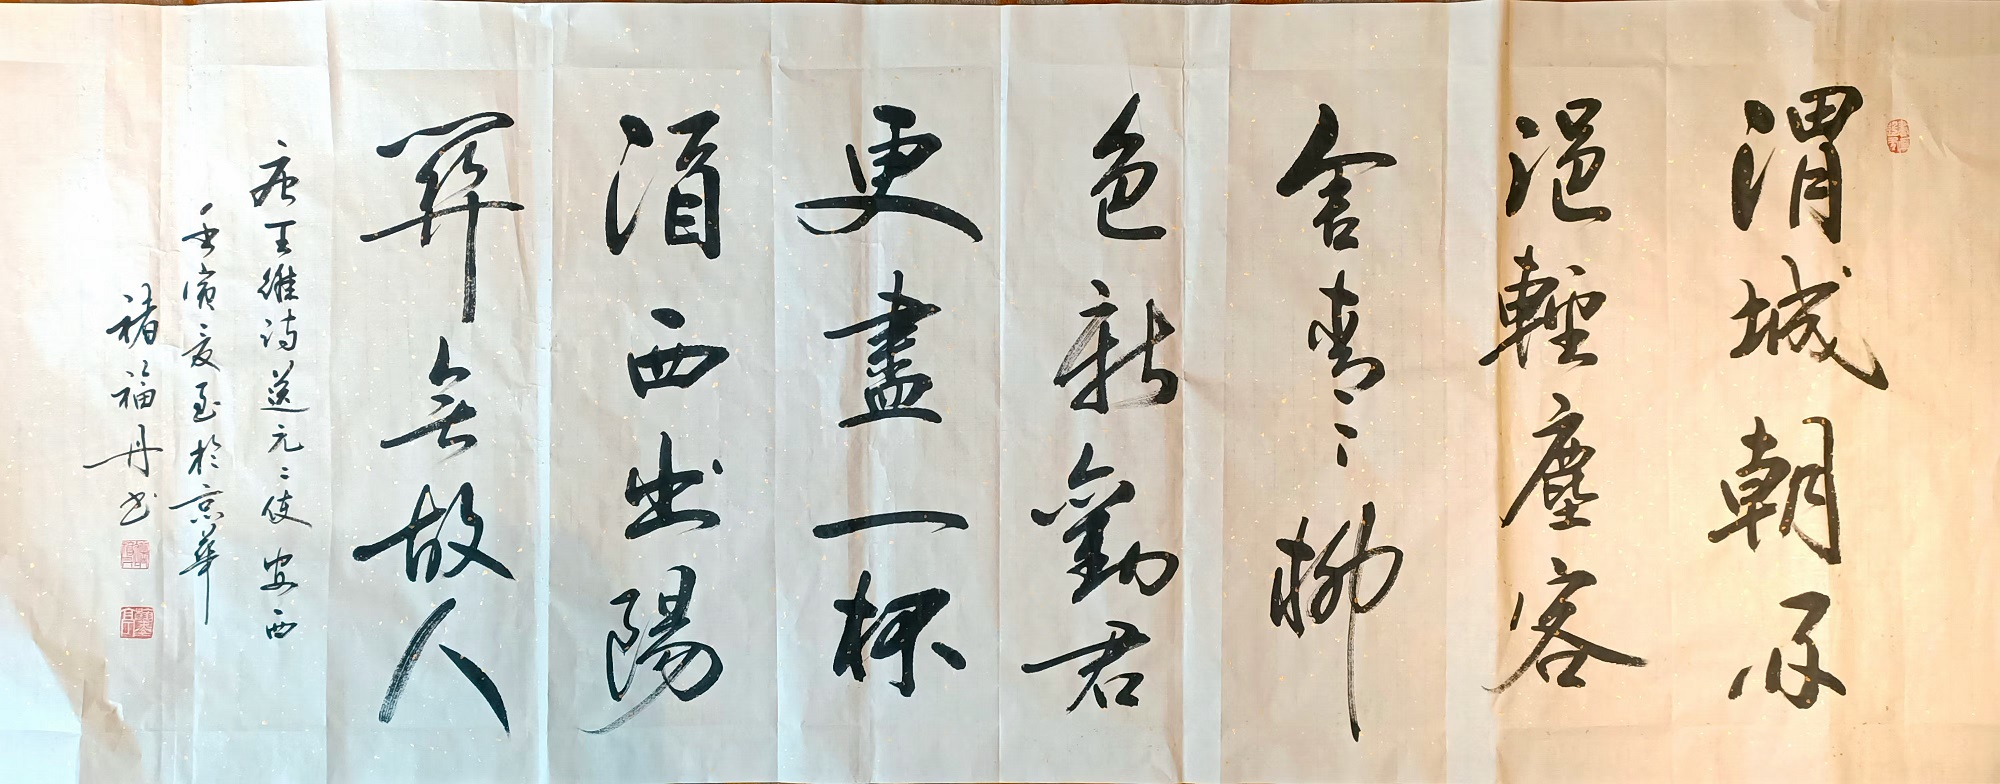 渭城朝雨
浥輕塵客
舍青々柳
色新勸君
更盡一杯
酒西出陽
關無故人
唐王維詩送元二使安西
壬寅夏至於京華
褚福丹书